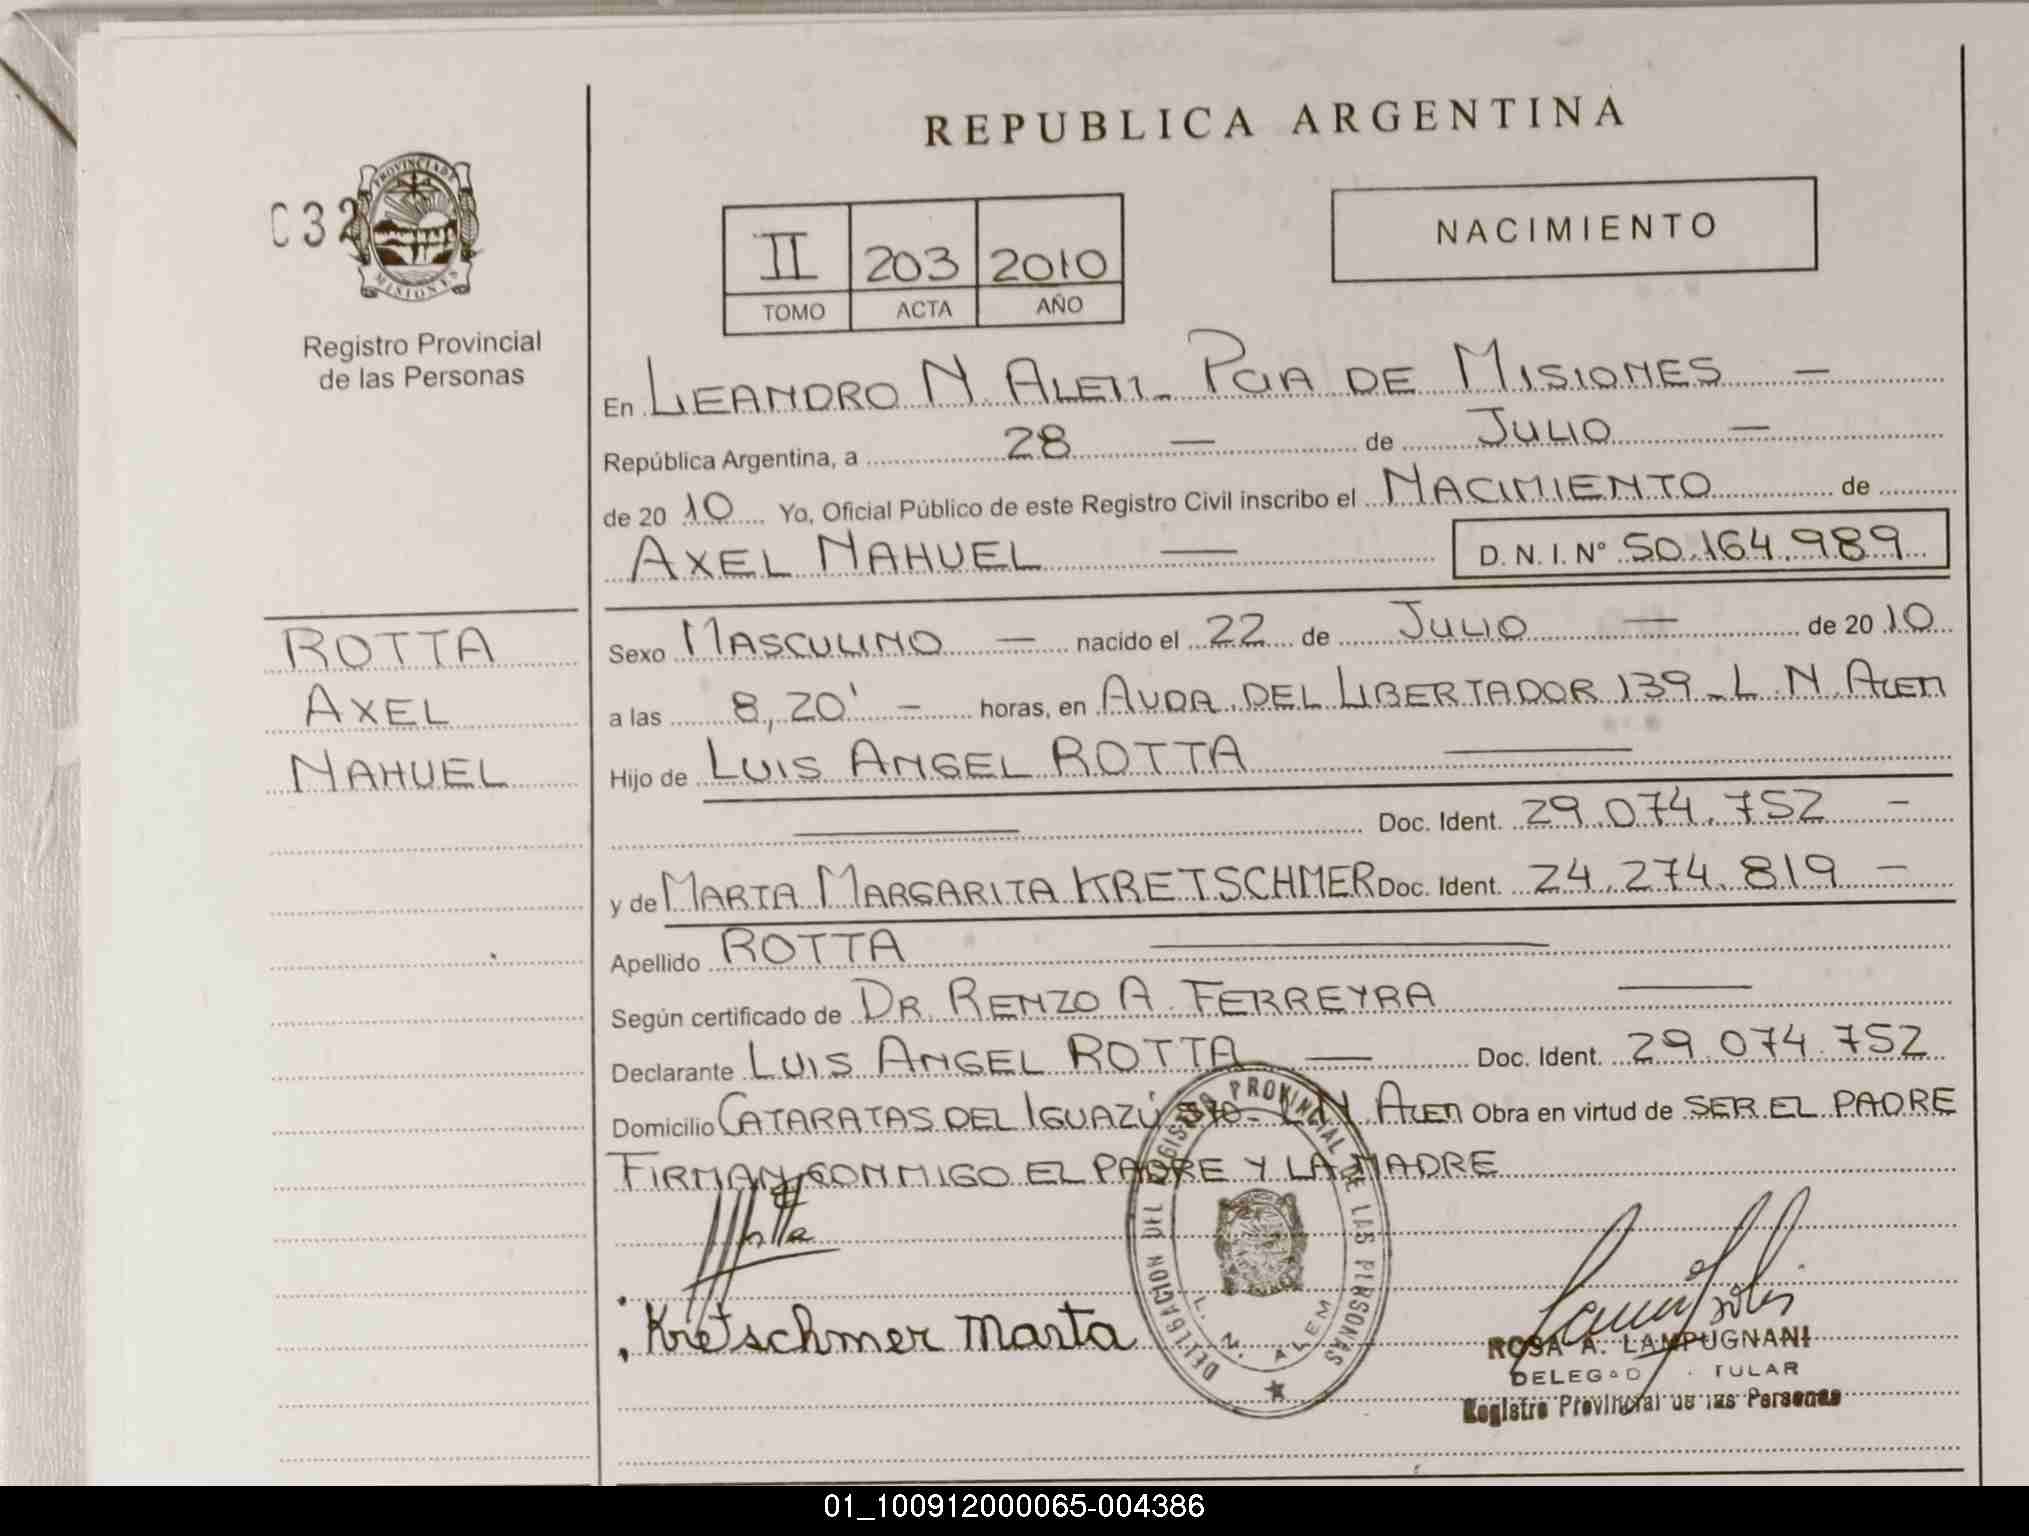 REPUBLICA ARGENTINA
C32
PROVINCIA DE
MISIONES
Registro Provincial
de las Personas
NACIMIENTO
II 203 2010
TOMO ACTA AÑO
En LEANDRO N. ALEM - PCIA DE MISIONES —
República Argentina, a 28 — de JULIO —
de 2010 Yo, Oficial Público de este Registro Civil inscribo el NACIMIENTO de
AXEL NAHUEL — D. N. I. Nº 50.164.989
ROTTA
AXEL
NAHUEL
Sexo MASCULINO — nacido el 22 de JULIO — de 2010
a las 8,20' - horas, en AVDA. DEL LIBERTADOR 139 - L. N. ALEM
Hijo de LUIS ANGEL ROTTA —
— Doc. Ident. 29.074.752 -
y de MARTA MARGARITA KRETSCHMER Doc. Ident. 24.274.819 -
Apellido ROTTA —
Según certificado de DR. RENZO A. FERREYRA —
Declarante LUIS ANGEL ROTTA — Doc. Ident. 29.074.752
Domicilio CATARATAS DEL IGUAZÚ - L. N. ALEM Obra en virtud de SER EL PADRE
FIRMAN CONMIGO EL PADRE Y LA MADRE
Kretschmer Marta
DELEGACION DEL REGISTRO PROVINCIAL DE LAS PERSONAS
L. N. ALEM
ROSA A. LAMPUGNANI
DELEGAD TULAR
Registro Provincial de las Personas
01_100912000065-004386